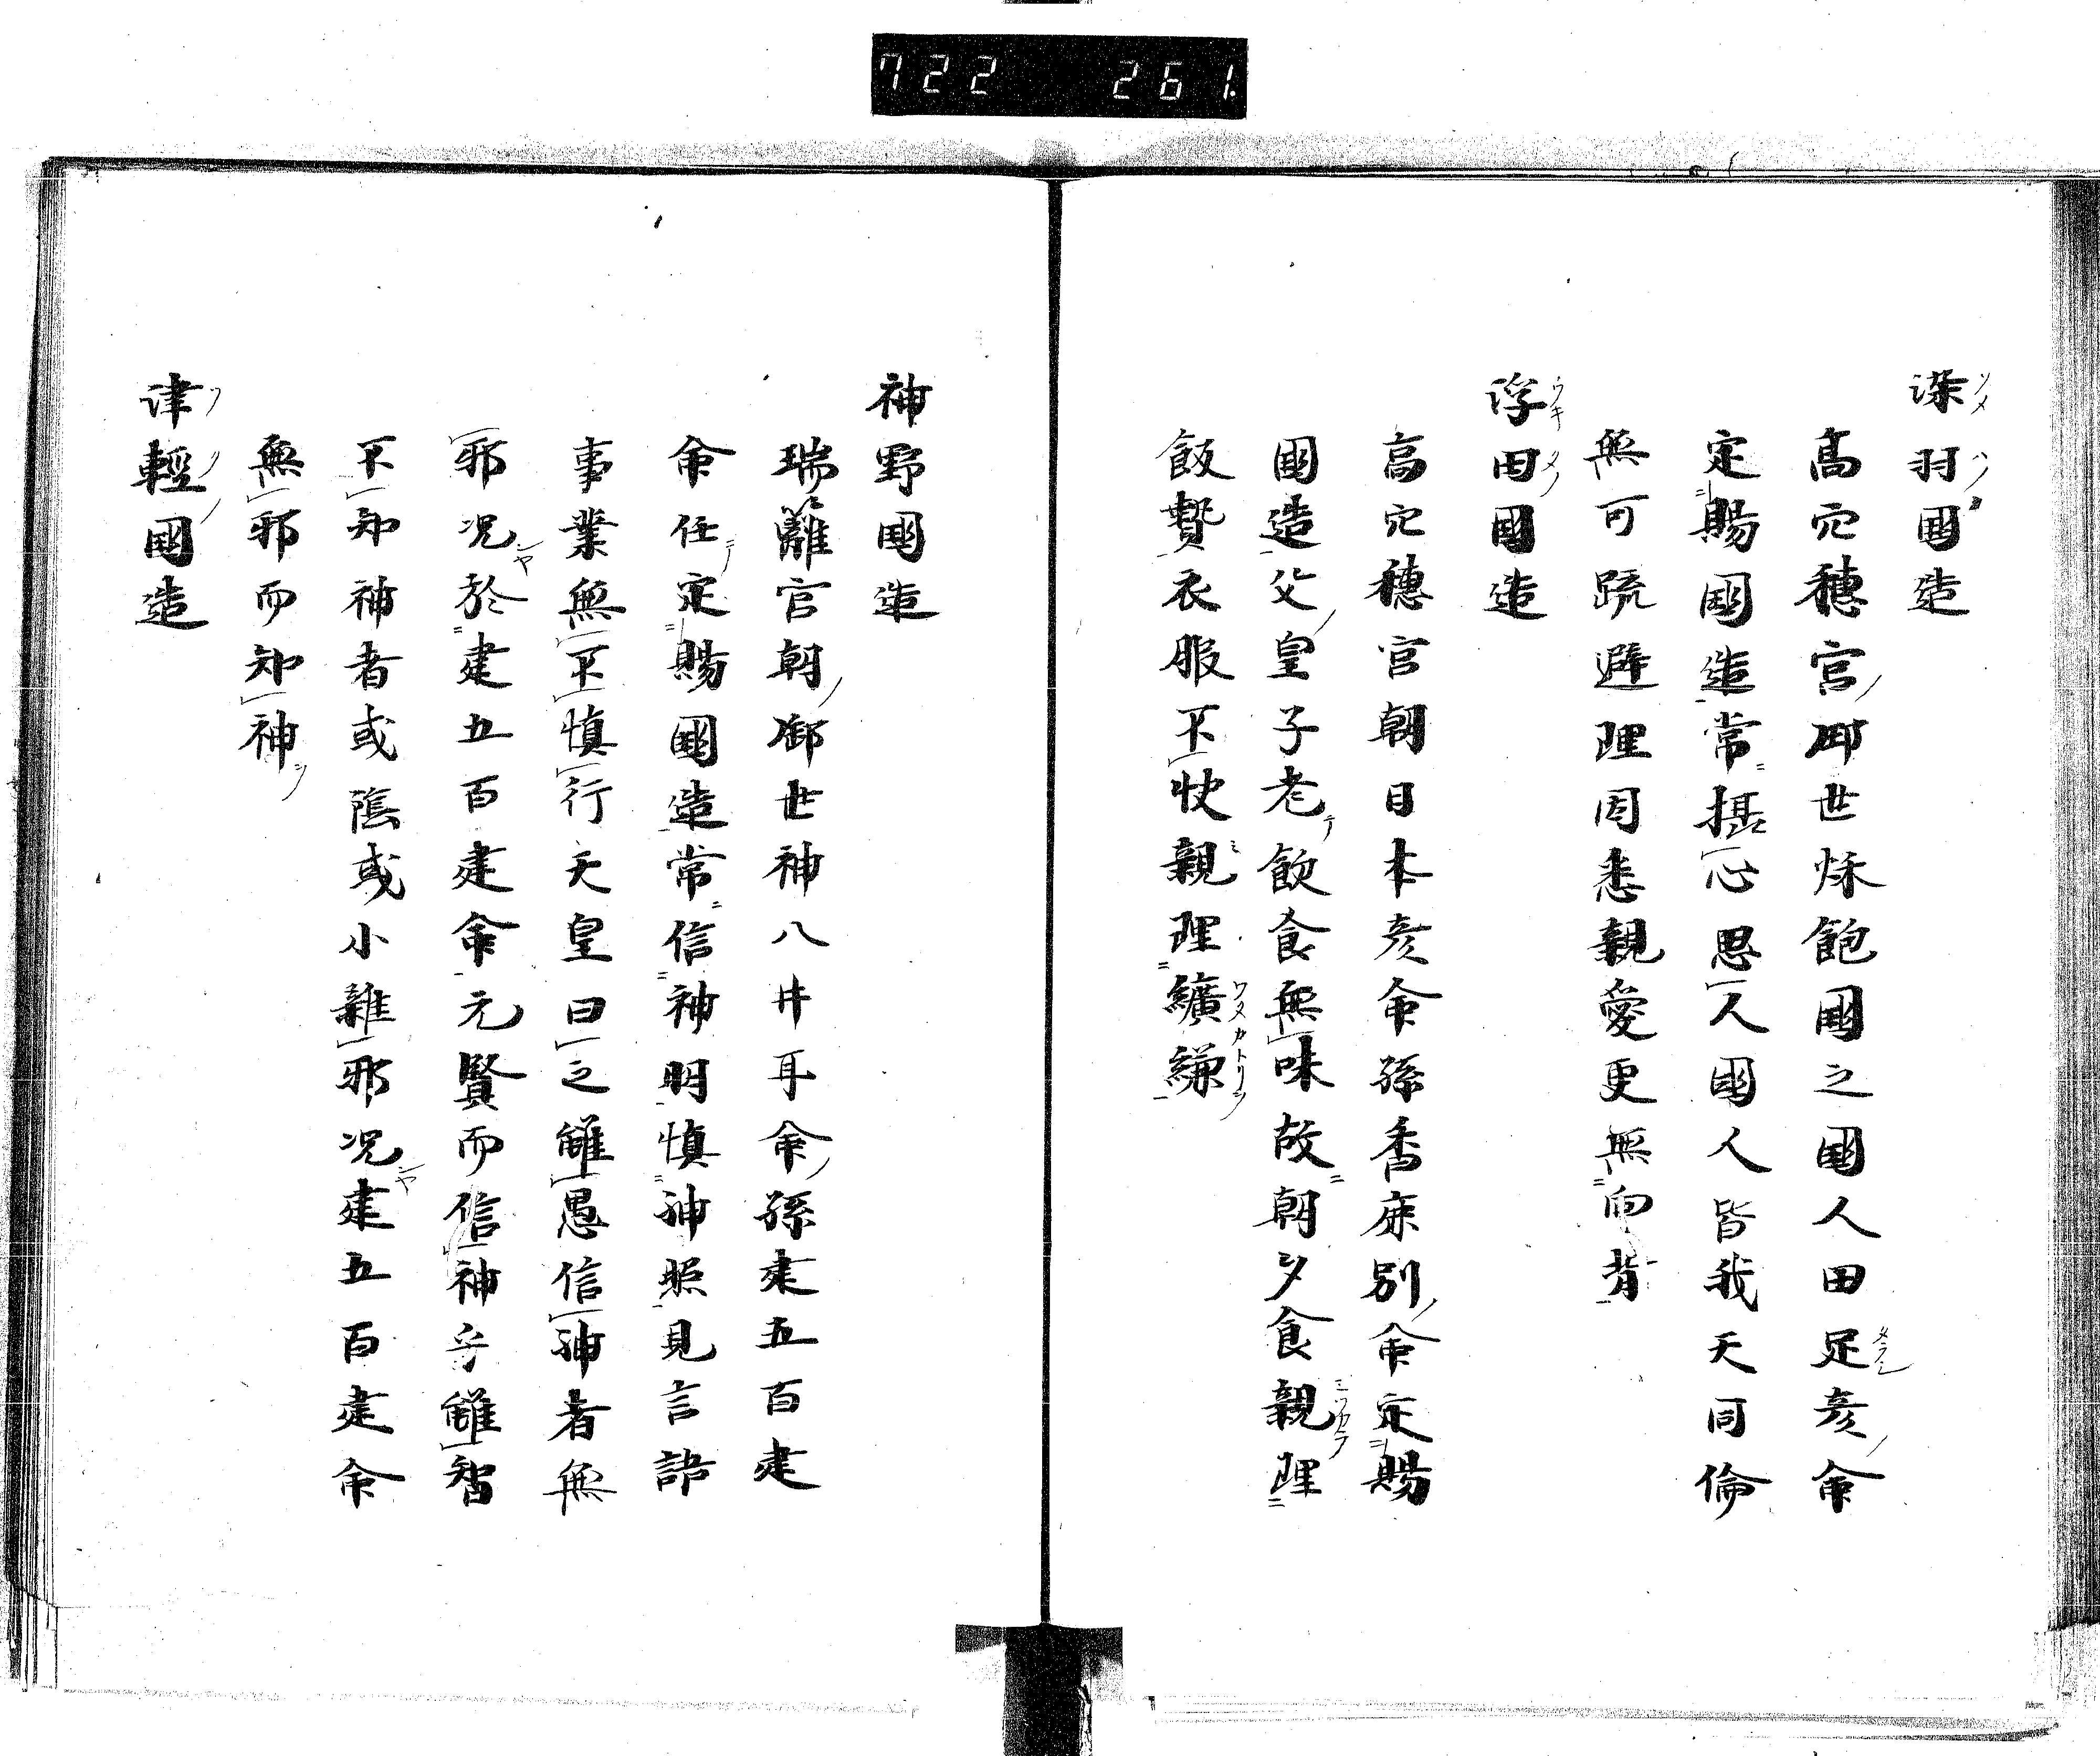 722 261
染羽國造
高穴穗宮御世烁飽國之國人田足彦命
定賜國造常攝心思人國人皆我天同倫
無可疏避理因悉親愛更無向背
浮田國造
高穴穗宮朝日本彦命孫香床別命定賜
國造父皇子老飲食無味故朝夕食親理
飯贄衣服不快親理纊縑
神野國造
瑞籬宮朝御世神八井耳命孫建五百建
命任定賜國造常信神明慎神照見言諱
事業無不慎行天皇曰之雖愚信神者無
邪况於建五百建命元賢而信神乎雖智
不知神者或陰或小雖邪况建五百建命
無邪而知神
津輕國造